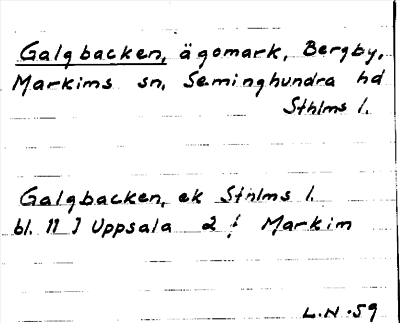 Galgbacken, ägomark, Bergby,
Markims sn, Seminghundra hd
Sthlms l.
Galgbacken, ek Sthlms l.
bl. 11 J Uppsala 2 f Markim
L.N. 59